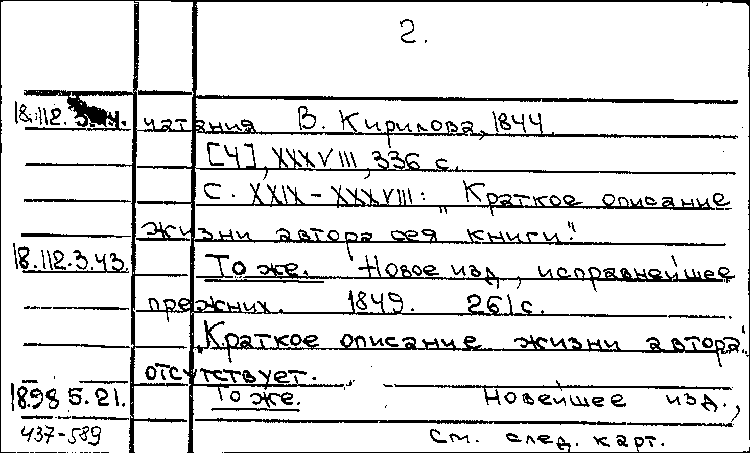 2.
18.112. чатания В. Кирилова, 1844.
[4], XXXVIII, 336 с.
С. XXIX - XXXVIII: „Краткое описание
жизни автора сея книги."
18.112.3.43. То же. Новое изд., исправнейшее
прежних. 1849. 261 с.
„Краткое описание жизни автора"
отсутствует.
18.98 5.21. То же. Новейшее изд.,
437-589 См. след. карт.